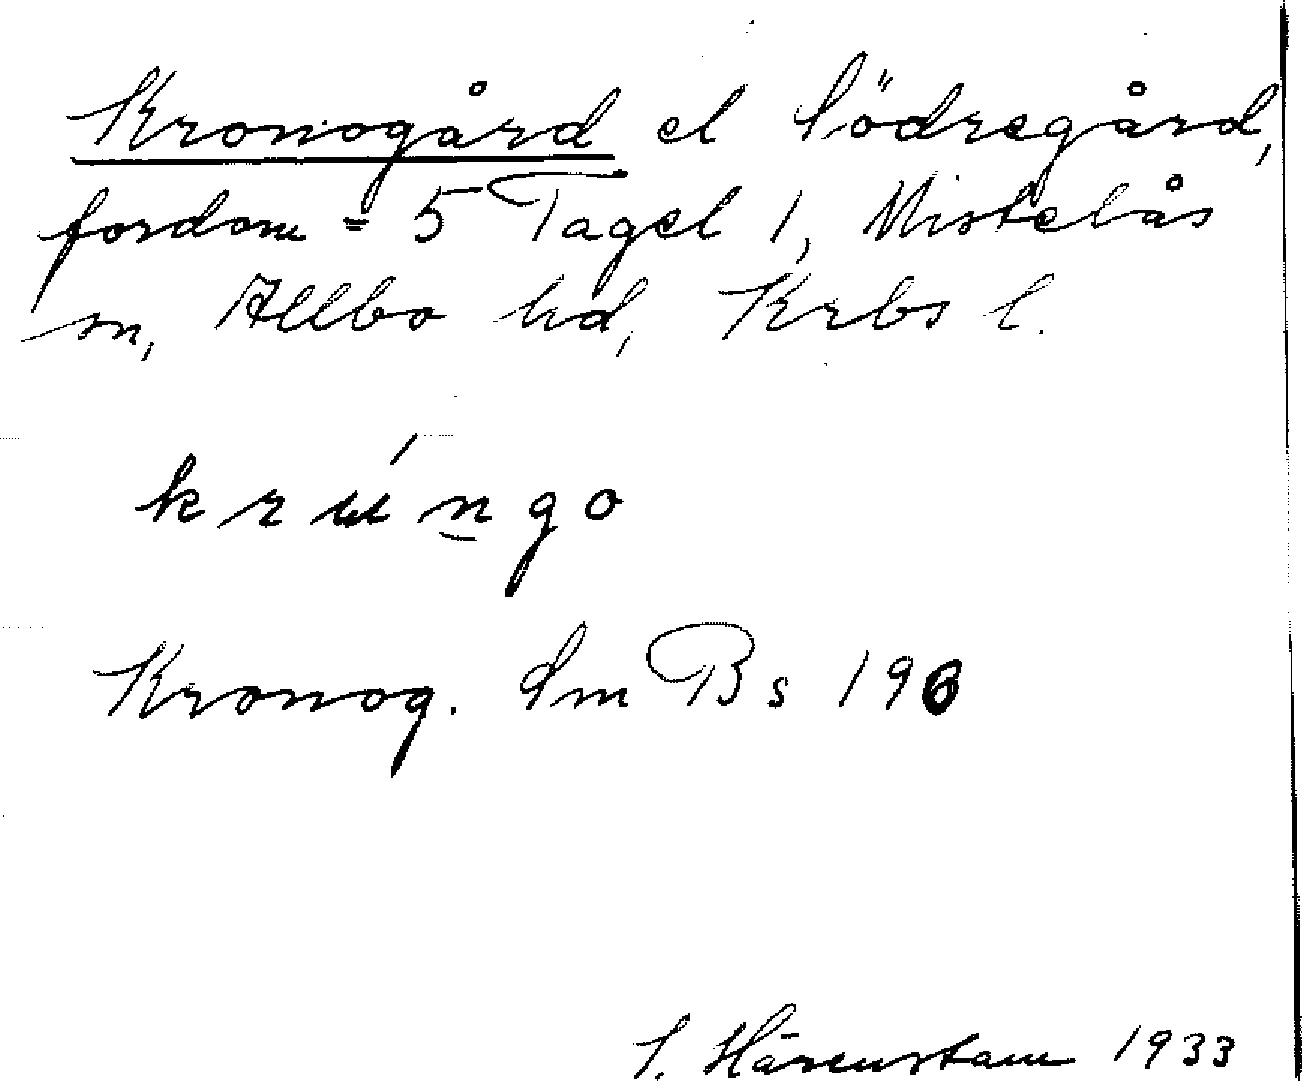 Kronogård el Södregård,
fordom = 5 Tagel 1, Mistelås
sn, Allbo hd, Krbs l.
krúngo
Kronog. Sm Bs 196
S. Hårenstam 1933